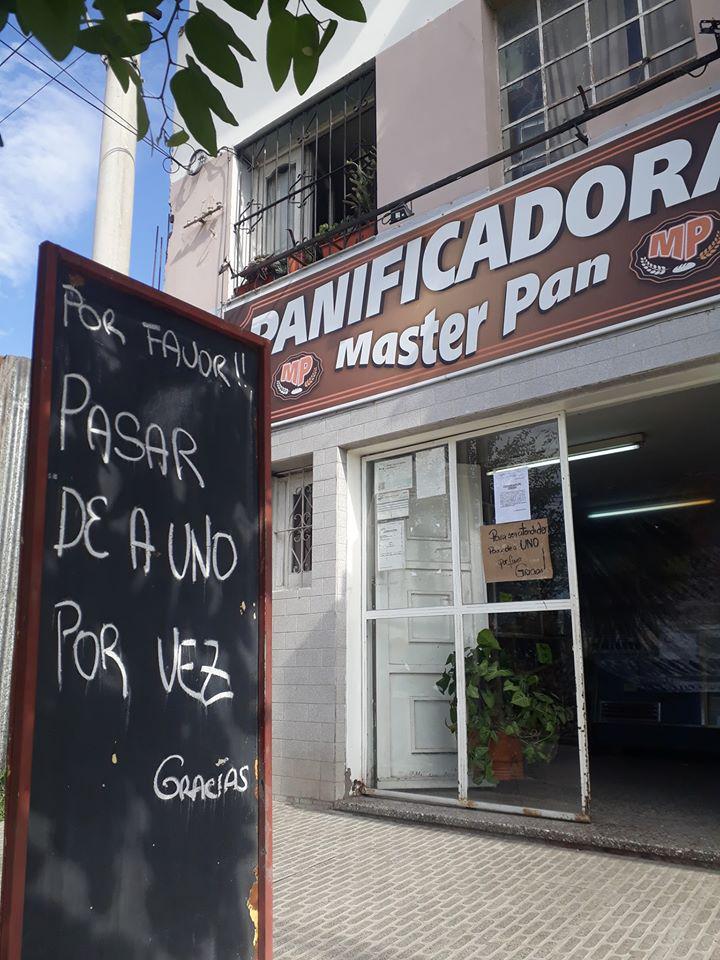 POR FAVOR!!
PASAR
DE A UNO
POR VEZ
GRACIAS
PANIFICADORA
Master Pan
MP
MP
Para ser atendidos
Pase de a UNO
por favor
Gracias!